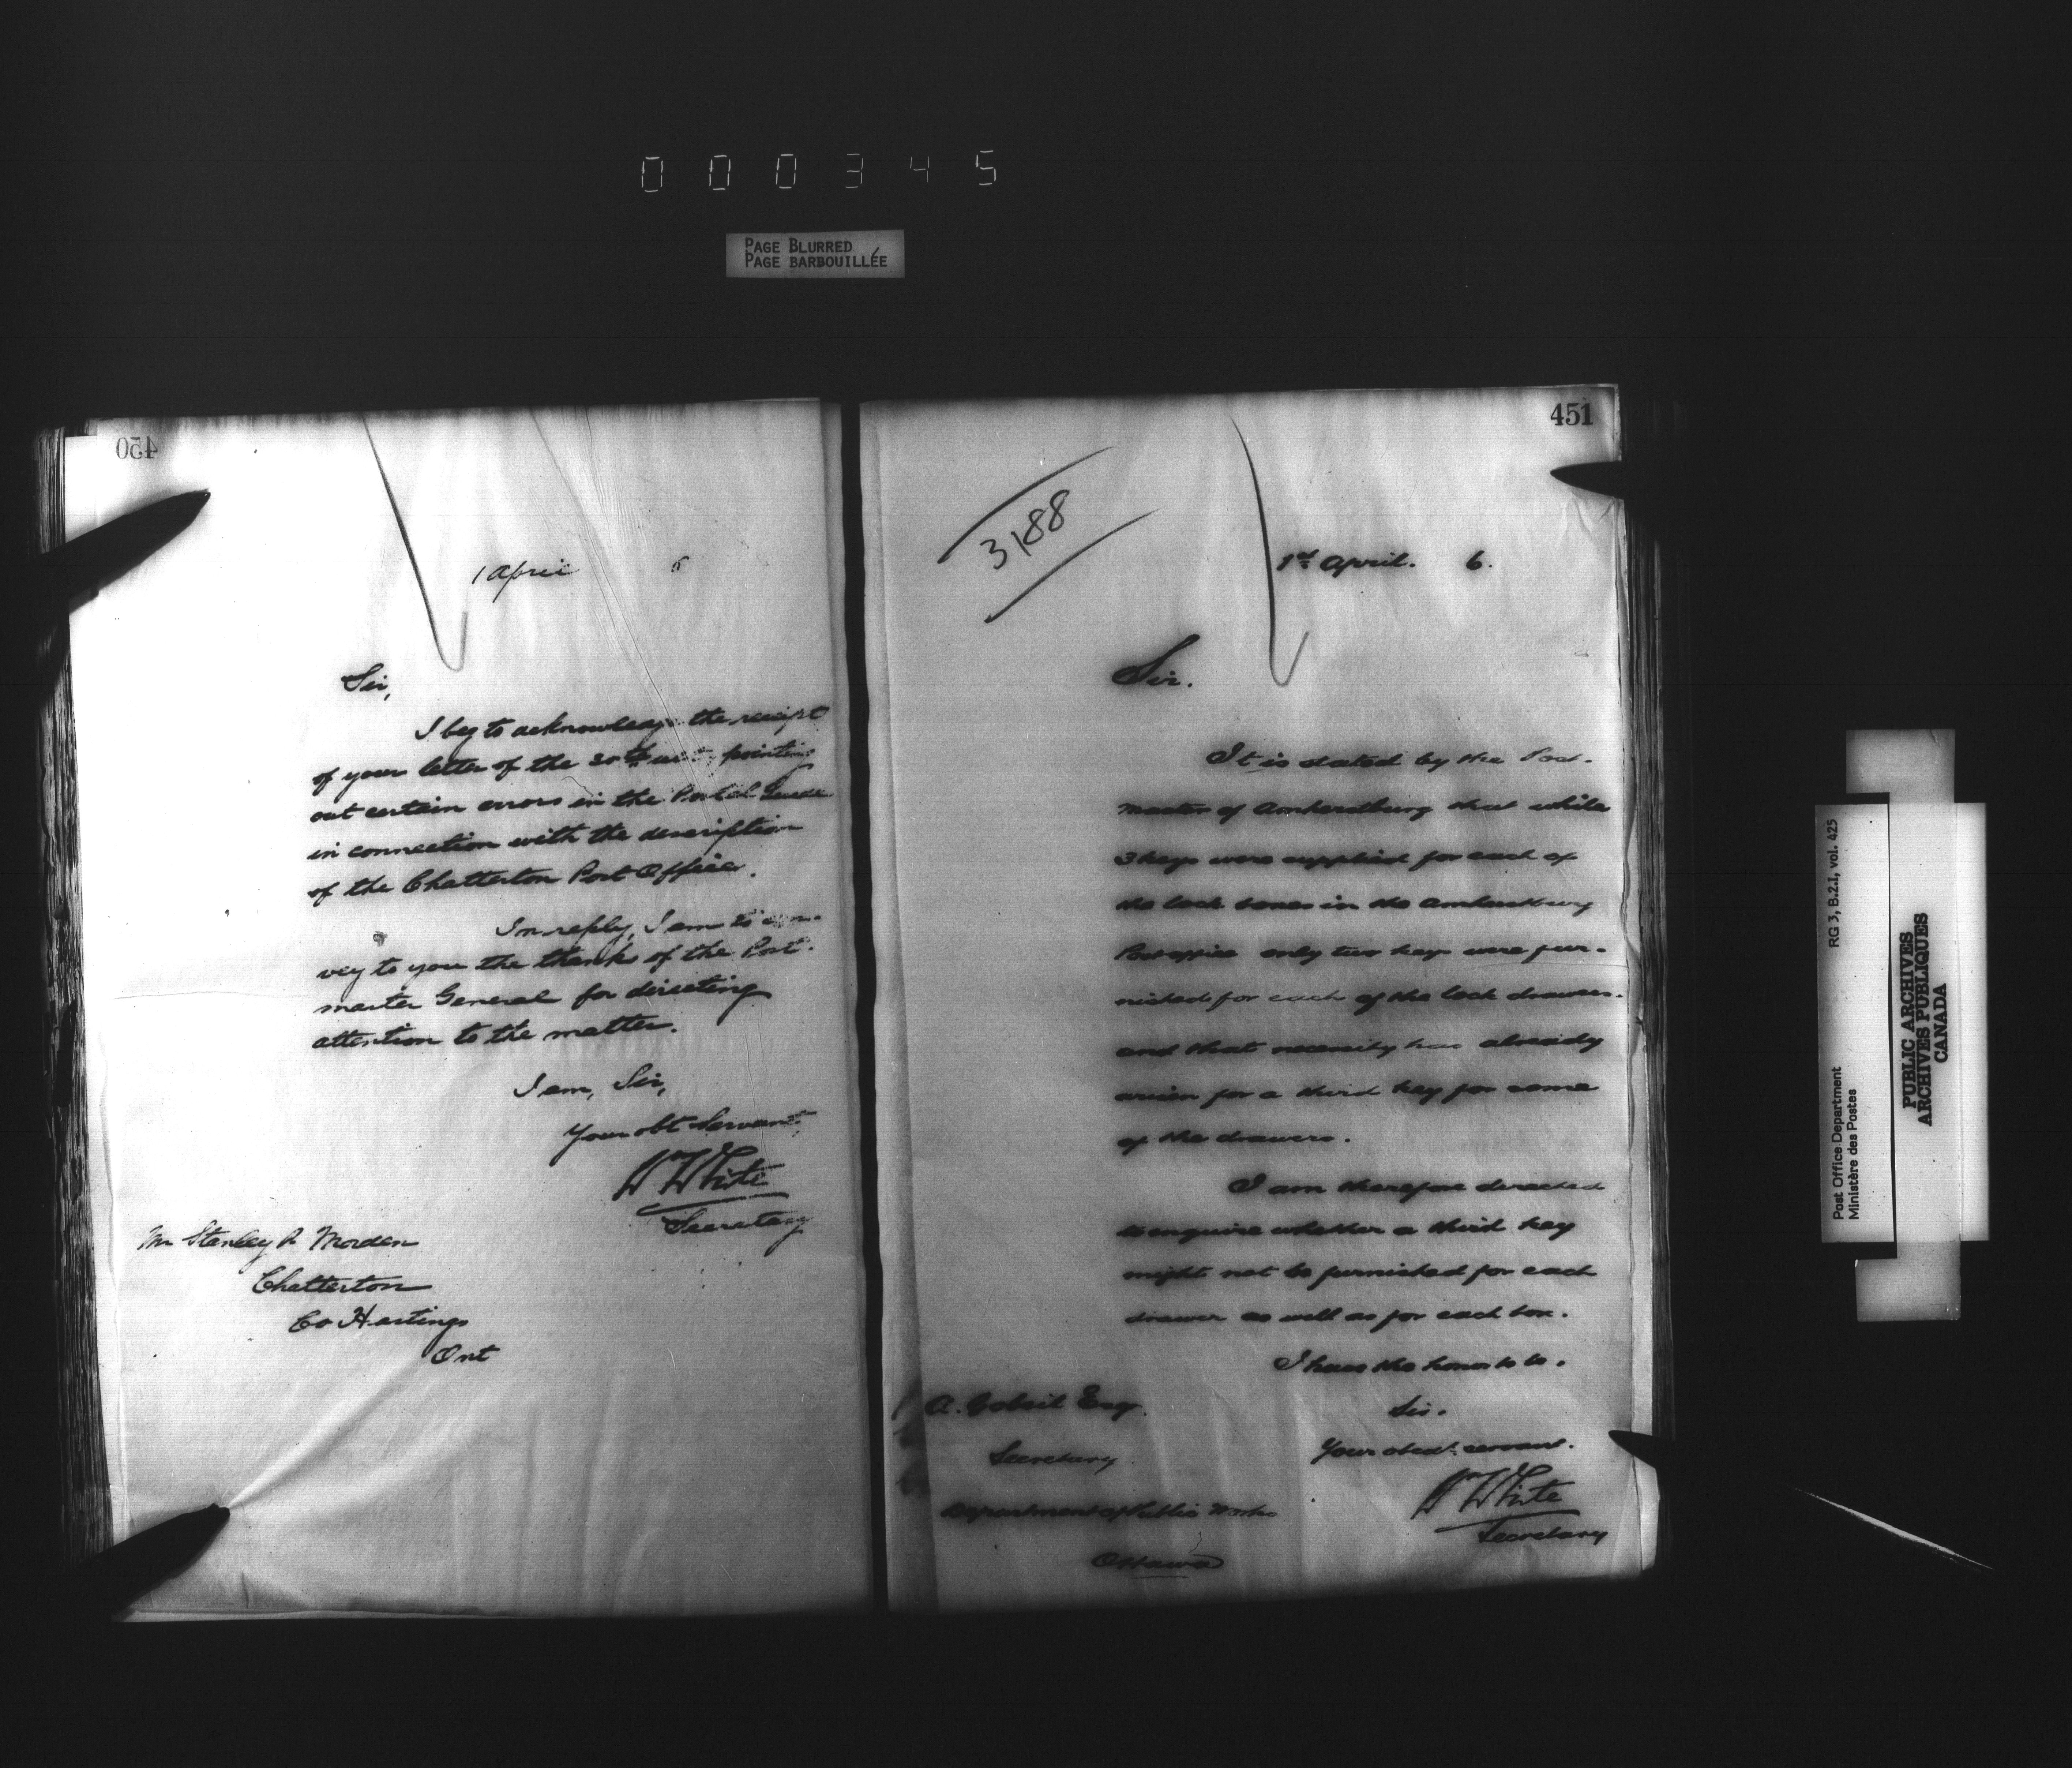 000345
PAGE BLURRED
PAGE BARBOUILLÉE
450
1 April 6
Sir,
I beg to acknowledge the receipt
of your letter of the 20th ulto, pointing
out certain errors in the Postal Guide
in connection with the description
of the Chatterton Post Office.
In reply, I am to con-
vey to you the thanks of the Post-
master General for directing
attention to the matter.
I am, Sir,
Your obt Servant,
Wm White
Secretary
Mr Stanley R Morden
Chatterton
Co Hastings
Ont
451
3188
1st April. 6.
Sir.
It is stated by the Post-
master of Amherstburg that while
3 keys were supplied for each of
the lock boxes in the Amherstburg
Post office only two keys were fur-
nished for each of the lock drawers.
and that necessity has already
arisen for a third key for some
of the drawers.
I am therefore directed
to enquire whether a third key
might not be furnished for each
drawer as well as for each box.
I have the honor to be.
Sir.
Your obedt. servant.
Wm White
Secretary
A. Gobeil Esq.
Secretary
Department of Public Works
Ottawa
RG 3, B.2.I, vol. 425
Post Office Department
Ministère des Postes
PUBLIC ARCHIVES
ARCHIVES PUBLIQUES
CANADA